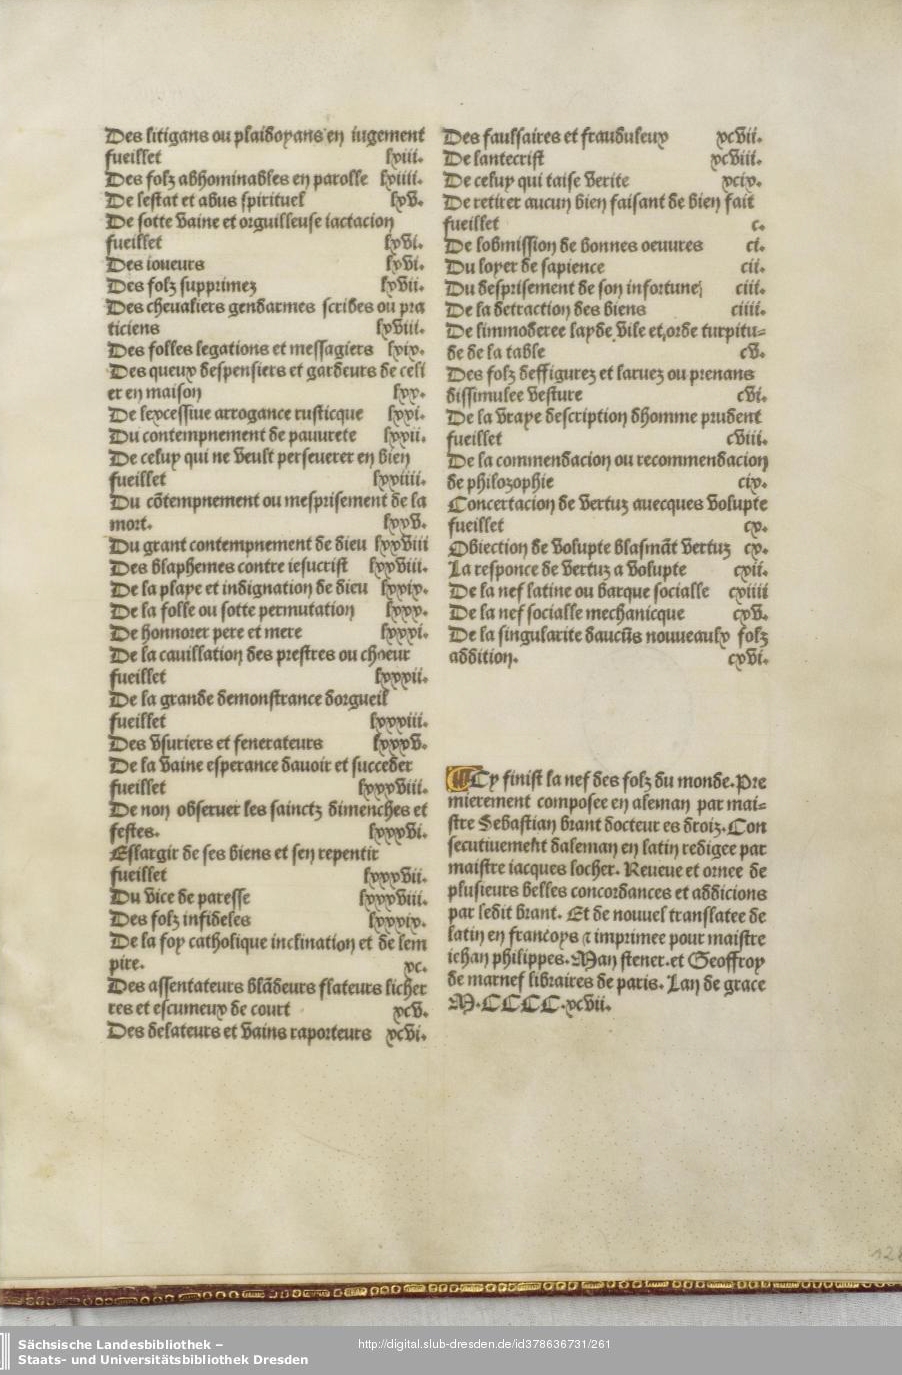 Des litigans ou plaidoyans en iugement
fueillet lxiii.
Des folz abhominables en parolle lxiiii.
De lestat et abus spirituel lxv.
De sotte vaine et orguilleuse iactacion
fueillet lxvi.
Des ioueurs lxvi.
Des folz supprimez lxvii.
Des cheualiers gendarmes scribes ou pra
ticiens lxviii.
Des folles legations et messagiers lxix.
Des queux despensiers et gardeurs de celi
er en maison lxx.
De lexcessiue arrogance rusticque lxxi.
Du contempnement de pauurete lxxii.
De celuy qui ne veult perseuerer en bien
fueillet lxxiiii.
Du cõtempnement ou mesprisement de la
mort. lxxv.
Du grant contempnement de dieu lxxviii
Des blaphemes contre iesucrist lxxviii.
De la playe et indignation de dieu lxxix.
De la folle ou sotte permutation lxxx.
De honnorer pere et mere lxxxi.
De la cauillation des prestres ou chœur
fueillet lxxxii.
De la grande demonstrance dorgueil
fueillet lxxxiii.
Des vsuriers et fenerateurs lxxxv.
De la vaine esperance dauoir et succeder
fueillet lxxxviii.
De non obseruer les sainctz dimenches et
festes. lxxxvi.
Eslargir de ses biens et sen repentir
fueillet lxxxvii.
Du vice de paresse lxxxviii.
Des folz infideles lxxxix.
De la foy catholique inclination et de lem
pire. xc.
Des assentateurs blãdeurs flateurs licher
res et escumeux de court xcv.
Des delateurs et vains raporteurs xcvi.
Des faulsaires et frauduleux xcvii.
De lantecrist xcviii.
De celuy qui taise verite xcix.
De retirer aucun bien faisant de bien fait
fueillet c.
De lobmission de bonnes oeuures ci.
Du loyer de sapience cii.
Du desprisement de son infortune ciii.
De la detraction des biens ciiii.
De limmoderee layde vile et orde turpitu=
de de la table cv.
Des folz deffigurez et laruez ou prenans
dissimulee vesture cvi.
De la vraye description dhomme prudent
fueillet cviii.
De la commendacion ou recommendacion
de philozophie cix.
Concertacion de vertuz auecques volupte
fueillet cx.
Obiection de volupte blasmãt vertuz cx.
La responce de vertuz a volupte cxii.
De la nef latine ou barque socialle cxiiii
De la nef socialle mechanicque cxv.
De la singularite daucũs nouueaulx folz
addition. cxvi.
Cy finist la nef des folz du monde. Pre
mierement composee en aleman par mai=
stre Sebastian brant docteur es droiz. Con
secutiuement daleman en latin redigee par
maistre iacques locher. Reueue et ornee de
plusieurs belles concordances et addicions
par ledit brant. Et de nouuel translatee de
latin en francoys ⁊ imprimee pour maistre
iehan philippes. Man stener. et Geoffroy
de marnef libraires de paris. Lan de grace
M.CCCC.xcvii.
Sächsische Landesbibliothek –
Staats- und Universitätsbibliothek Dresden
http://digital.slub-dresden.de/id378636731/261